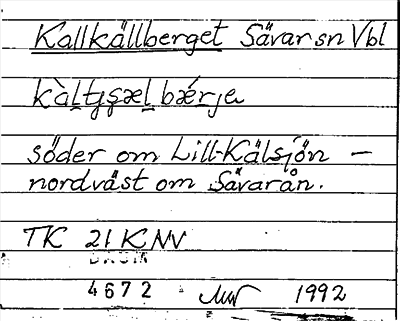 Kallkällberget Sävar sn Vbl
kàltjsæl bǽrje
söder om Lill-Kälsjön –
nordväst om Sävarån.
TK 21 K NV
4672 1992